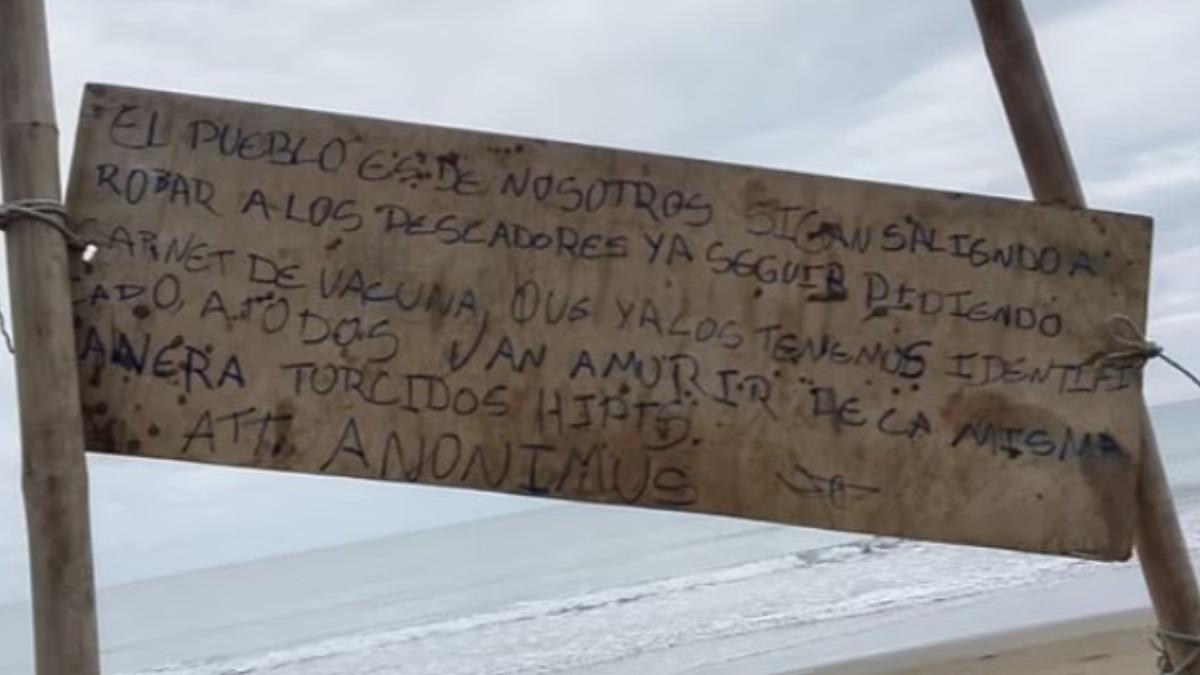 EL PUEBLO ES DE NOSOTROS SIGAN SALIENDO A
ROBAR A LOS PESCADORES YA SEGUIR PIDIENDO
CARNET DE VACUNA, QUE YA LOS TENEMOS IDENTIFI
CADO, A TODOS VAN AMURIR DE LA MISMA
ANERA TORCIDOS HIPTS.
ATT. ANONIMUS